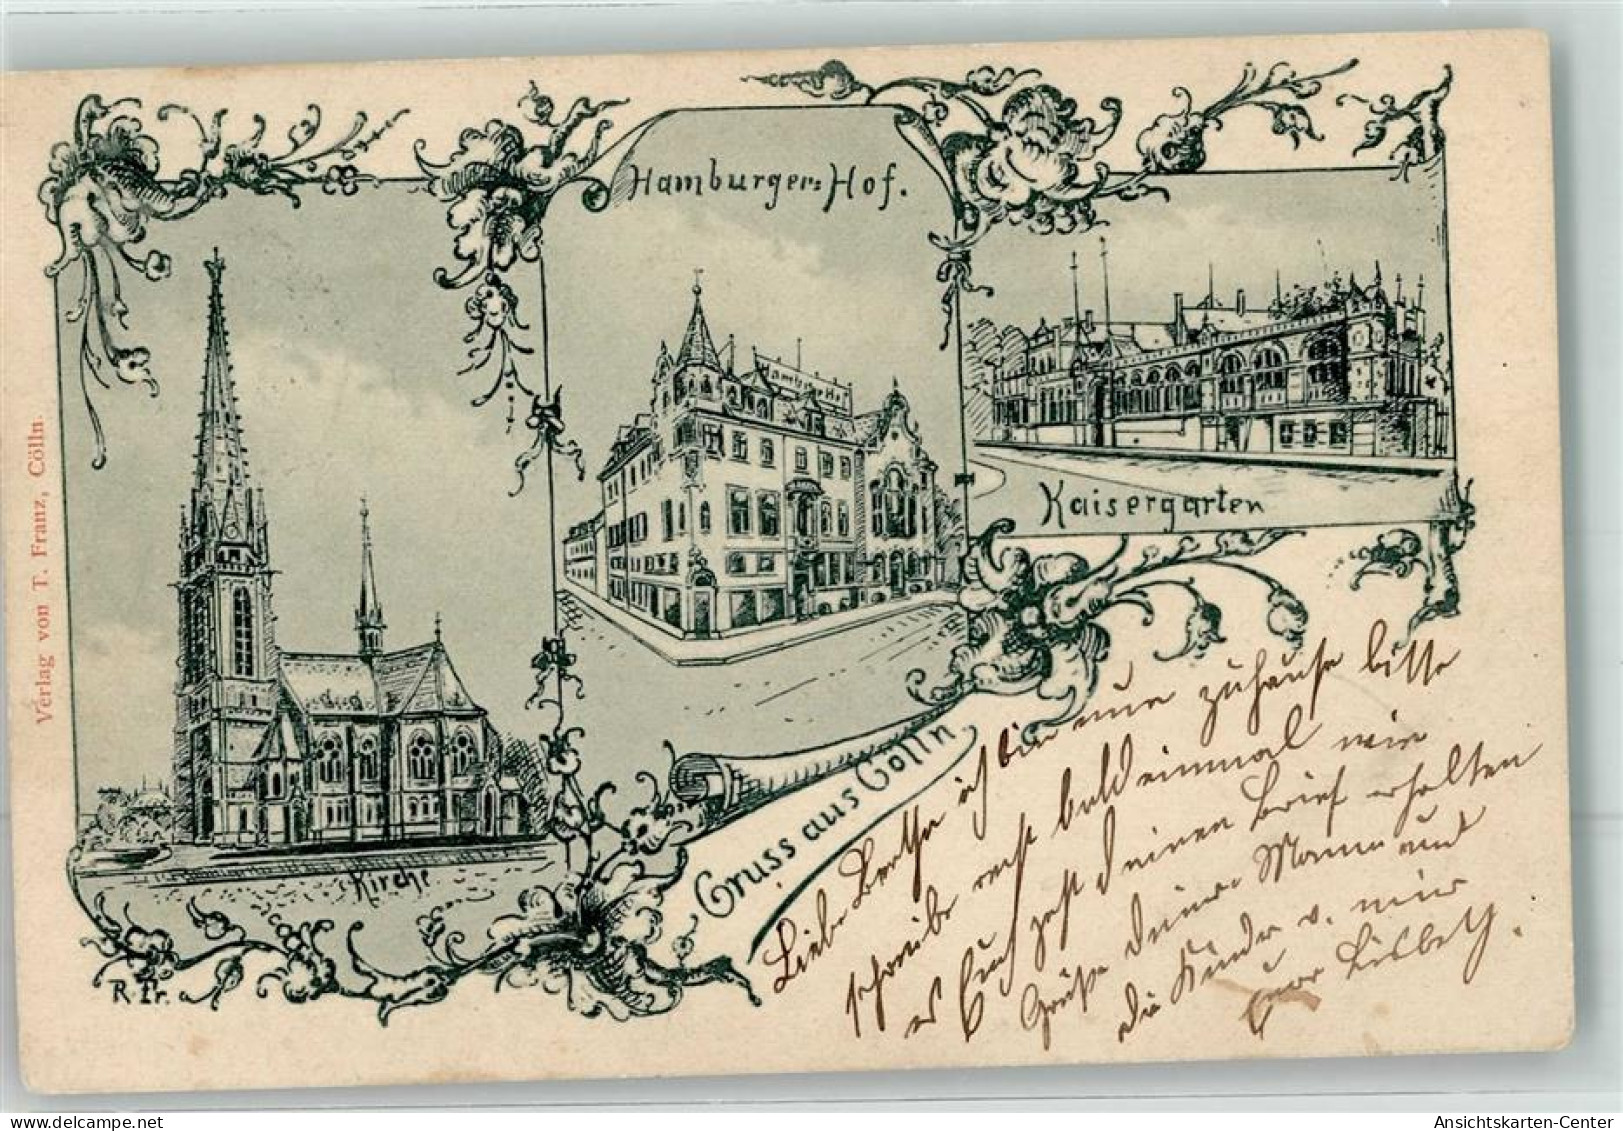 Hamburger=Hof.
Hamburger Hof
Kaisergarten
Kirche
R. Pr.
Gruss aus Cölln
Verlag von T. Franz, Cölln.
Liebe Bertha ich bin nur zuhause bitte
schreibe recht bald einmal wie
es Euch geht deinen Brief erhalten
Grüße deinen Mann und
die Kinder v. mir
Eure Lisbeth.
Ansichtskarten-Center